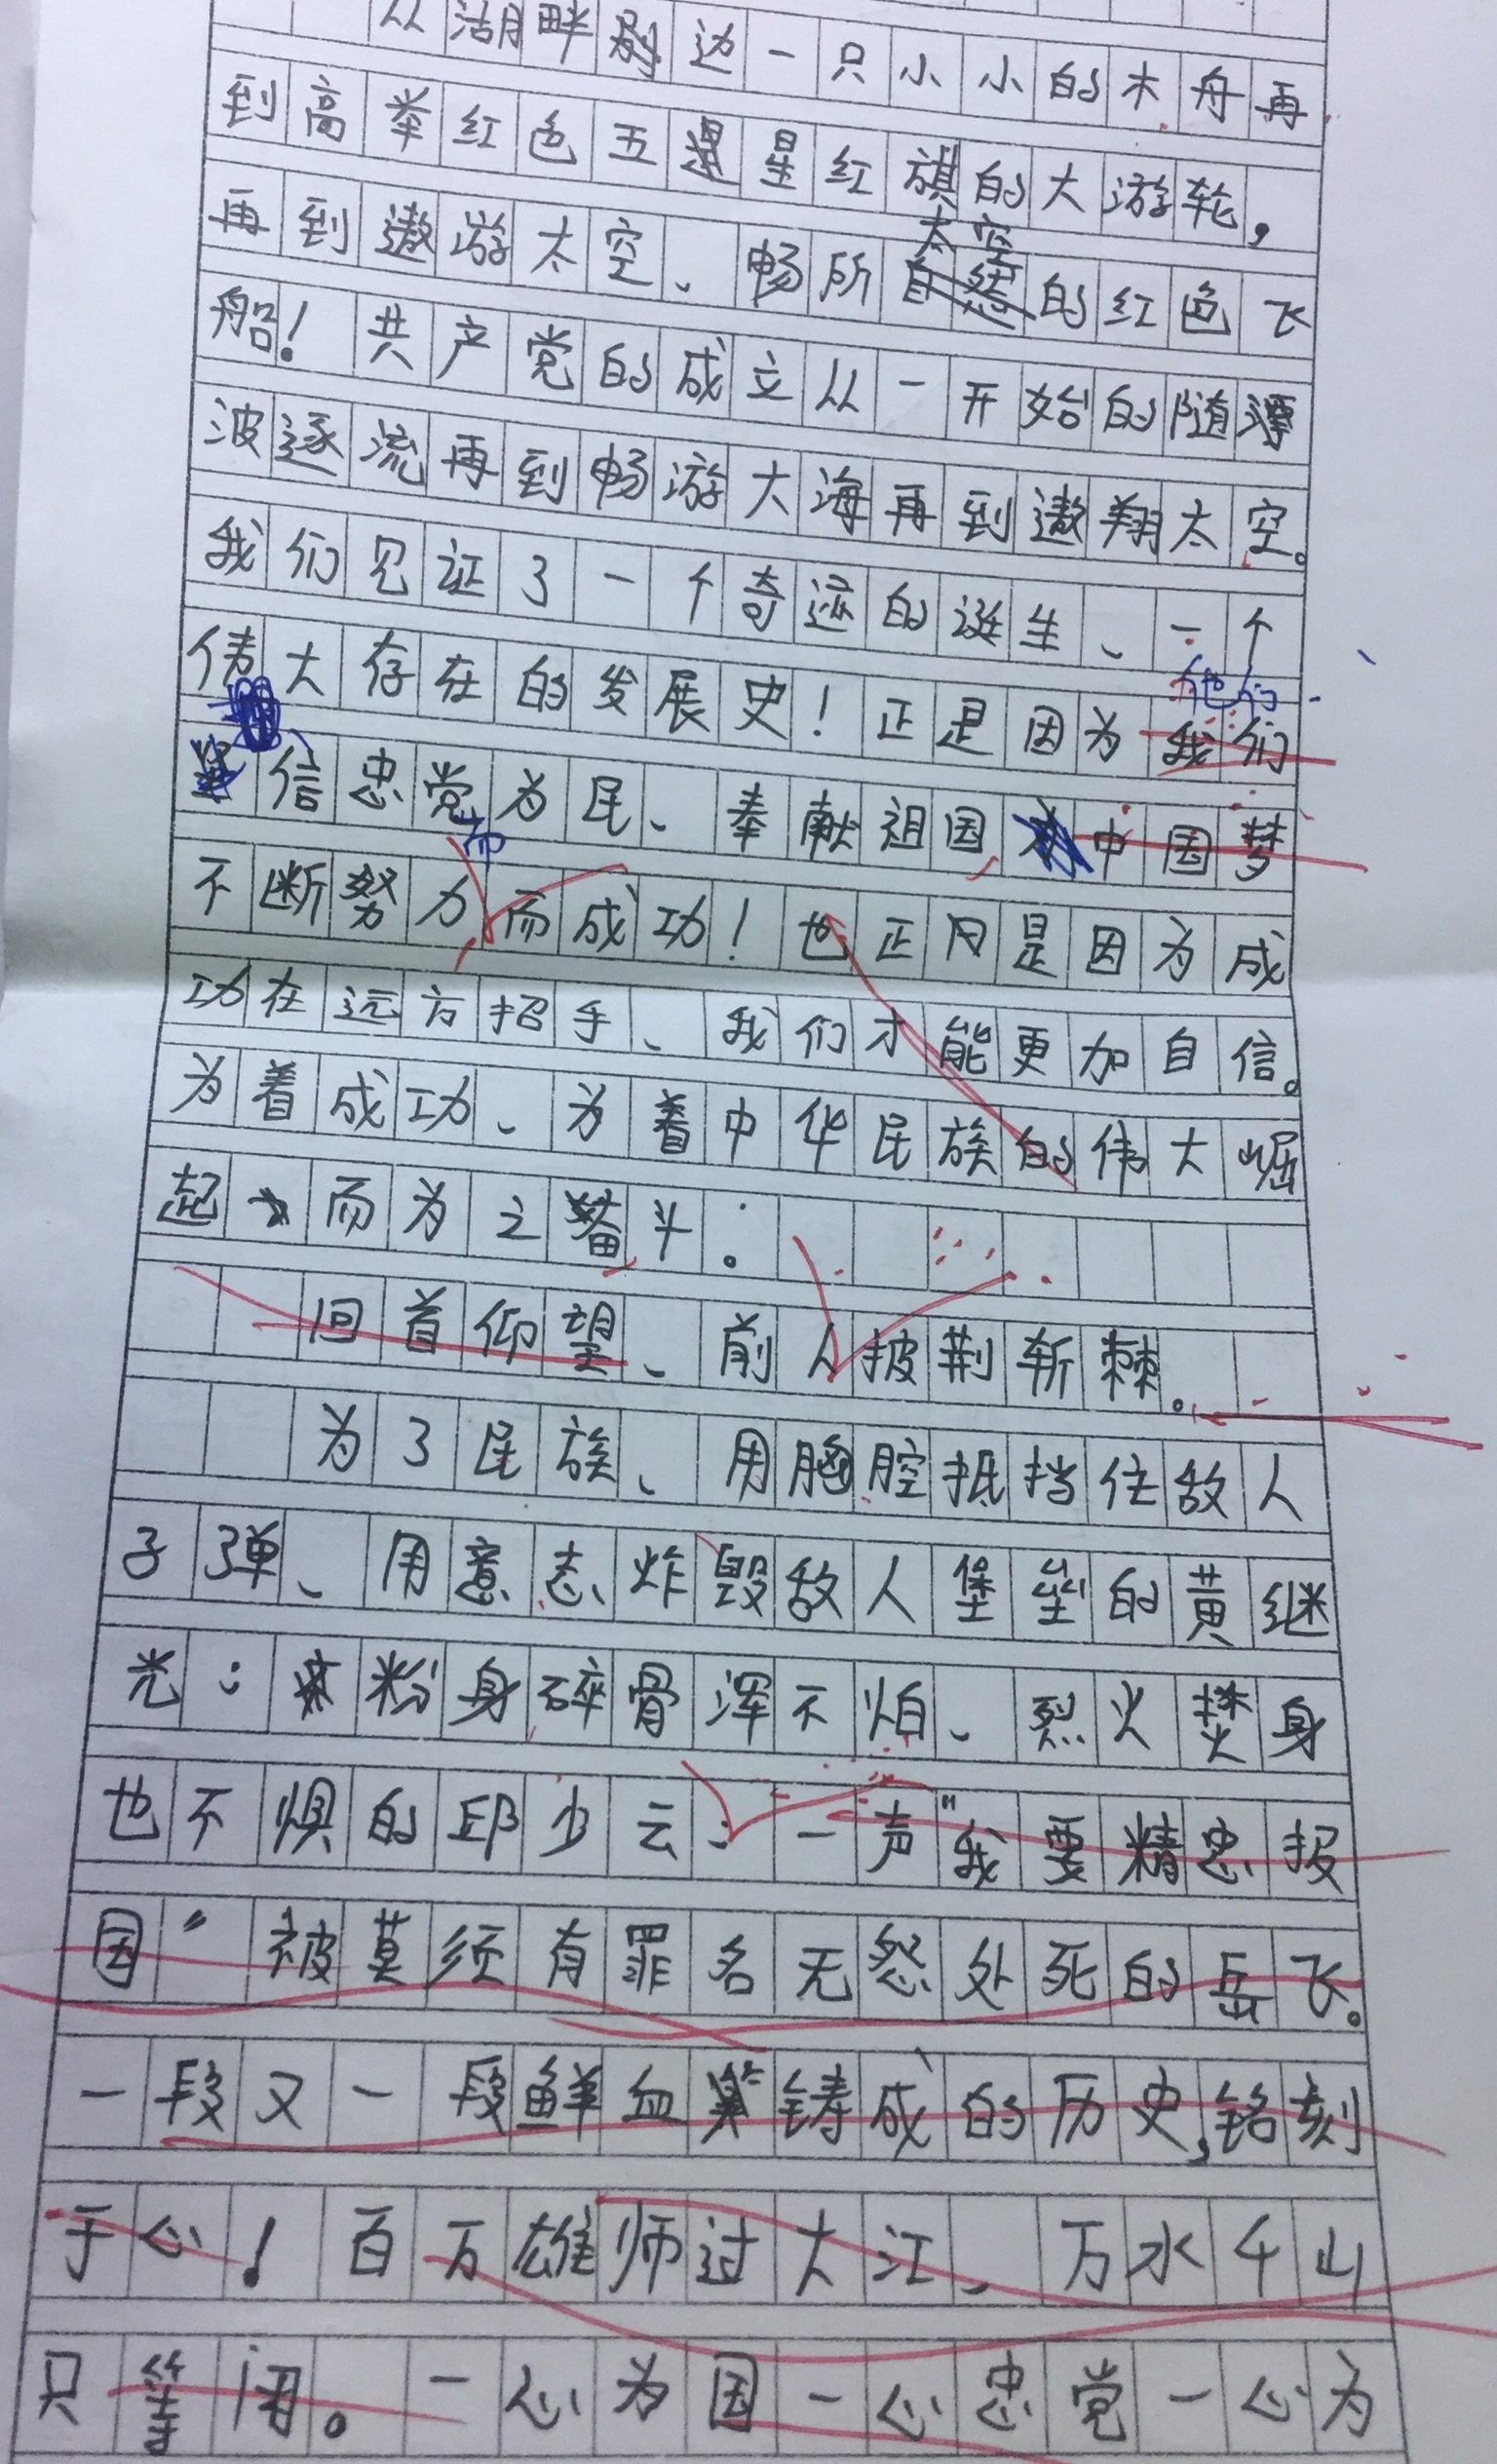 从湖畔边一只小小的木舟再
到高举红色五星红旗的大游轮，
再到遨游太空、畅所太空的红色飞
船！共产党的成立从一开始的随漂
波逐流再到畅游大海再到遨翔太空。
我们见证了一个奇迹的诞生、一个
伟大存在的发展史！正是因为我们
他们
信忠党为民、奉献祖国中国梦
而
不断努力而成功！也正是因为成
功在远方招手、我们才能更加自信。
为着成功、为着中华民族的伟大崛
起而为之奋斗。
回首仰望、前人披荆斩棘。
为了民族、用胸腔抵挡住敌人
子弹、用意志炸毁敌人堡垒的黄继
光；粉身碎骨浑不怕、烈火焚身
也不惧的邱少云；一声"我要精忠报
国"被莫须有罪名无怨处死的岳飞。
一段又一段鲜血铸成的历史，铭刻
于心！百万雄师过大江、万水千山
只等闲。一心为国一心忠党一心为